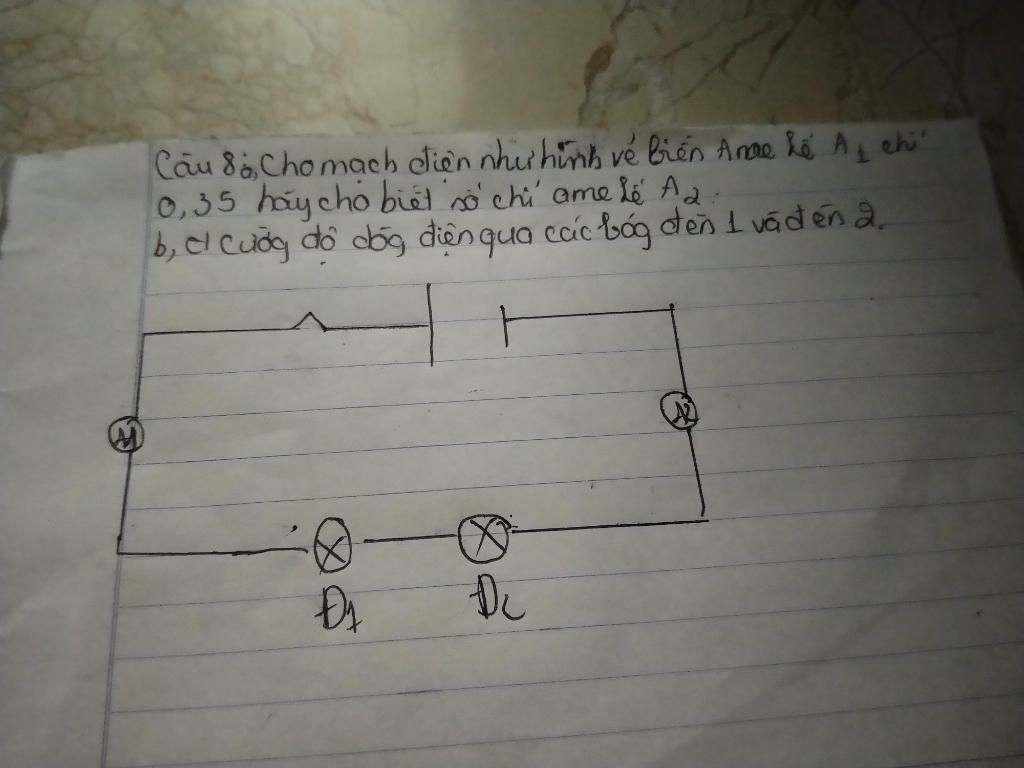 Câu 8 a, Cho mạch điện như hình vẽ biến Ame kế A1 chỉ
0,35 hãy cho biết số chỉ ame kế A2.
b, cường độ dòg điện qua các bóg đèn 1 và đèn 2.
A1
A2
Đ1
Đ2